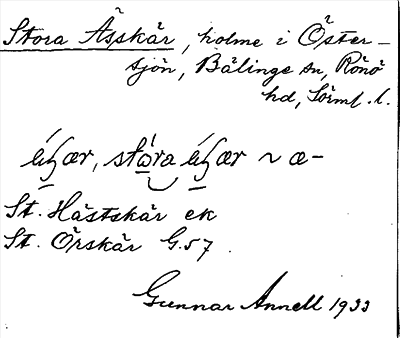 Stora Ässkär, holme i Öster-
sjön, Bälinge sn, Rönö
hd, Sörml. l.
stóra ~ æ-
St. Hästskär ek
St. Örskär G.57.
Gunnar Annell 1933